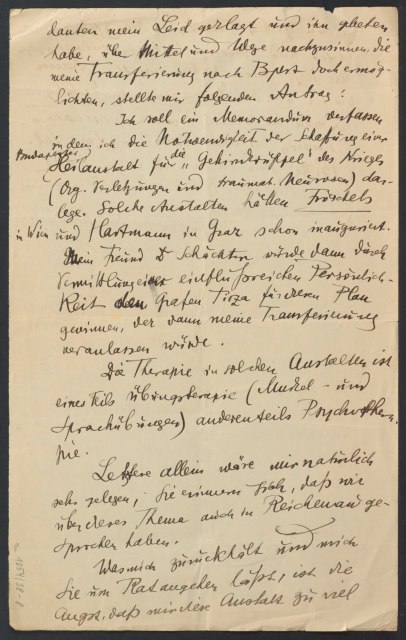 danten mein Leid geklagt und ihn gebeten
habe, über Mittel und Wege nachzusinnen, die
meine Transferierung nach Bpest doch ermög-
lichten, stellte mir folgenden Antrag:
Ich soll ein Memorandum verfassen
in dem ich die Notwendigkeit der Schaffung einer
Budapester Heilanstalt für die „Gehirnkrüppel" des Krieges
(Org. Verletzungen und traumat. Neurosen) dar-
lege. Solche Anstalten hätten Fröschels
in Wien und Hartmann in Graz schon inauguriert.
Mein Freund Dr Schächter würde dann durch
Vermittlung einer einflußreichen Persönlich-
keit den Grafen Tisza für diesen Plan
gewinnen, der dann meine Transferierung
veranlassen würde.
Die Therapie in solchen Anstalten ist
eines teils Übungstherapie (Muskel- und
Sprachübungen) anderenteils Psychother
pie.
Letztere allein wäre mir natürlich
sehr gelegen; Sie erinnern sich, daß wir
über dieses Thema auch in Reichenau ge-
sprochen haben.
Was mich zurückhält und mich
Sie um Rat angehen läßt, ist die
Angst, daß mir diese Anstalt zu viel
1054/38-8